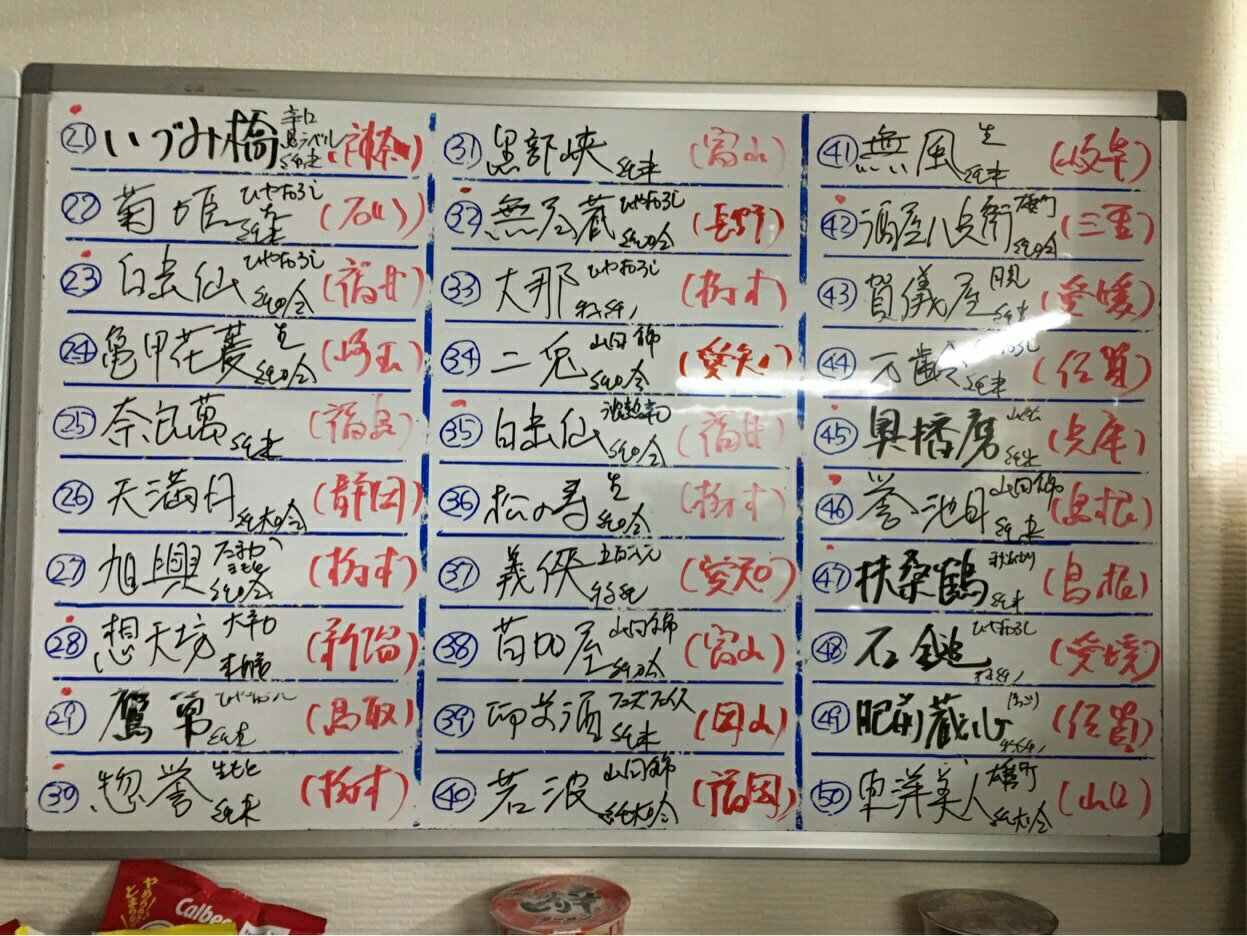 ㉑ いづみ橋 辛口 黒ラベル 純米 (神奈川)
㉒ 菊姫 ひやおろし 純米 (石川)
㉓ 白岳仙 ひやおろし 純吟 (福井)
㉔ 亀甲花菱 生 純吟 (埼玉)
㉕ 奈良萬 純米 (福島)
㉖ 天満月 純大吟 (静岡)
㉗ 旭興 きもと 純吟 (栃木)
㉘ 想天坊 大辛口 (新潟)
㉙ 鷹勇 ひやおろし 純米 (鳥取)
㉚ 惣誉 生もと 純米 (栃木)
㉛ 黒部峡 純米 (富山)
㉜ 無尽蔵 ひやおろし 純吟 (長野)
㉝ 大那 ひやおろし 特純 (栃木)
㉞ 二兎 山田錦 純吟 (愛知)
㉟ 白岳仙 純吟 (福井)
㊱ 松の寿 生 純吟 (栃木)
㊲ 義侠 五百万石 特純 (愛知)
㊳ 苗加屋 山田錦 純吟 (富山)
㊴ 御前酒 純米 (岡山)
㊵ 若波 山田錦 純大吟 (福岡)
㊶ 無風 生 純米 (岐阜)
㊷ 酒屋八兵衛 雄町 純吟 (三重)
㊸ 賀儀屋 月見 純米 (愛媛)
㊹ 万齢 純米 (佐賀)
㊺ 奥播磨 山廃 純米 (兵庫)
㊻ 誉池月 山田錦 純米 (島根)
㊼ 扶桑鶴 純米 (島根)
㊽ 石鎚 ひやおろし (愛媛)
㊾ 肥前蔵心 (佐賀)
㊿ 東洋美人 雄町 純大吟 (山口)
やめられない とまらない
Calbee